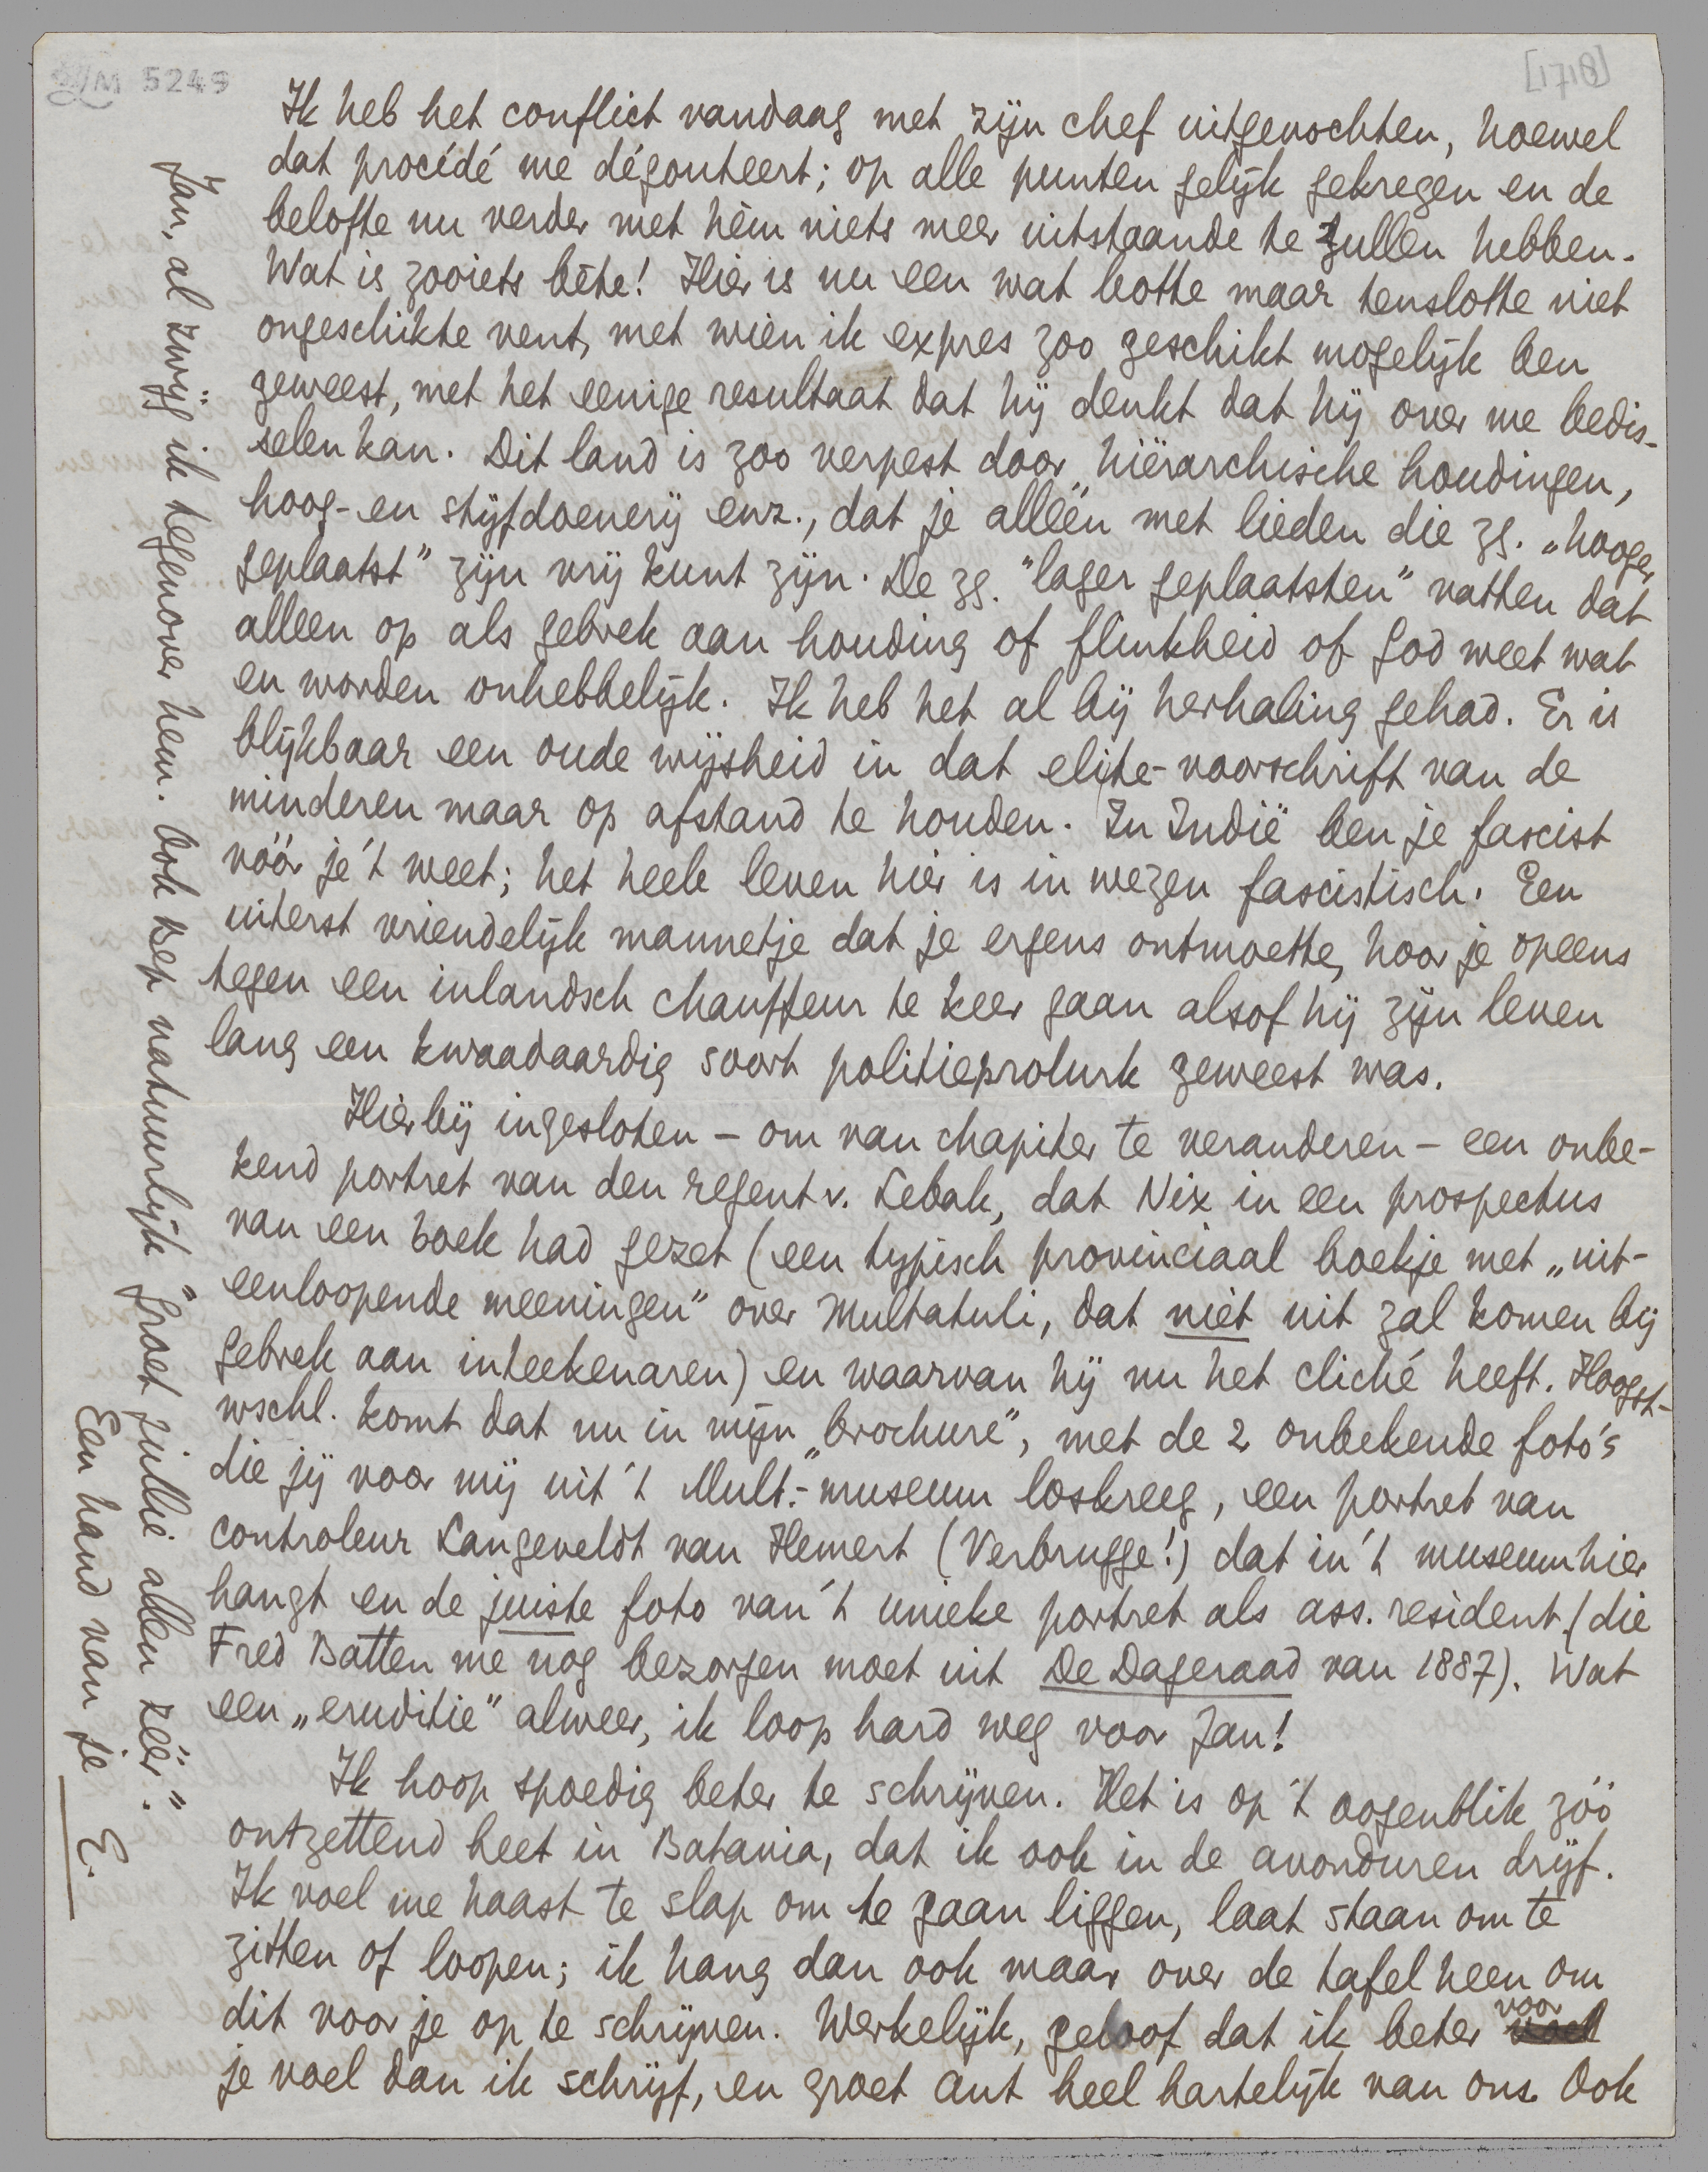 LM 5249
[1718]
Ik heb het conflict vandaag met zijn chef uitgevochten, hoewel
dat procédé me dégouteert; op alle punten gelijk gekregen en de
belofte nu verder met hèm niets meer uitstaande te zullen hebben.
Wat is zooiets bête! Hier is nu een wat botte maar tenslotte niet
ongeschikte vent, met wien ik expres zoo geschikt mogelijk ben
geweest, met het eenige resultaat dat hij denkt dat hij over me bedis-
selen kan. Dit land is zoo verpest door hiërarchische houdingen,
hoog- en stijfdoenerij enz., dat je alléén met lieden die zg. „hooger
geplaatst” zijn vrij kunt zijn. De zg. “lager geplaatsten” vatten dat
alleen op als gebrek aan houding of flinkheid of god weet wat
en worden onhebbelijk. Ik heb het al bij herhaling gehad. Er is
blijkbaar een oude wijsheid in dat elite-voorschrift van de
minderen maar op afstand te houden. In Indië ben je fascist
vóór je 't weet; het heele leven hier is in wezen fascistisch. Een
uiterst vriendelijk mannetje dat je ergens ontmoette, hoor je opeens
tegen een inlandsch chauffeur te keer gaan alsof hij zijn leven
lang een kwaadaardig soort politieprolurk geweest was.
Hierbij ingesloten - om van chapiter te veranderen - een onbe-
kend portret van den regent v. Lebak, dat Nix in een prospectus
van een boek had gezet (een typisch provinciaal boekje met „uit-
eenloopende meeningen” over Multatuli, dat niet uit zal komen bij
gebrek aan inteekenaren) en waarvan hij nu het cliché heeft. Hoogst-
wschl. komt dat nu in mijn „brochure”, met de 2 onbekende foto's
die jij voor mij uit 't Mult.-museum loskreeg, een portret van
controleur Langeveldt van Hemert (Verbrugge!) dat in 't museum hier
hangt en de juiste foto van 't unieke portret als ass. resident (die
Fred Batten me nog bezorgen moet uit De Dageraad van 1887). Wat
een „eruditie” alweer, ik loop hard weg voor Jan!
Ik hoop spoedig beter te schrijven. Het is op 't oogenblik zóó
ontzettend heet in Batavia, dat ik ook in de avonduren drijf.
Ik voel me haast te slap om te gaan liggen, laat staan om te
zitten of loopen; ik hang dan ook maar over de tafel heen om
dit voor je op te schrijven. Werkelijk, geloof dat ik beter voor
je voel dan ik schrijf, en groet Ant heel hartelijk van ons. Ook
Jan, al zwijg ik tegenover hem. Ook Bep natuurlijk “groet jullie allen zéér.”
Een hand van je
E.